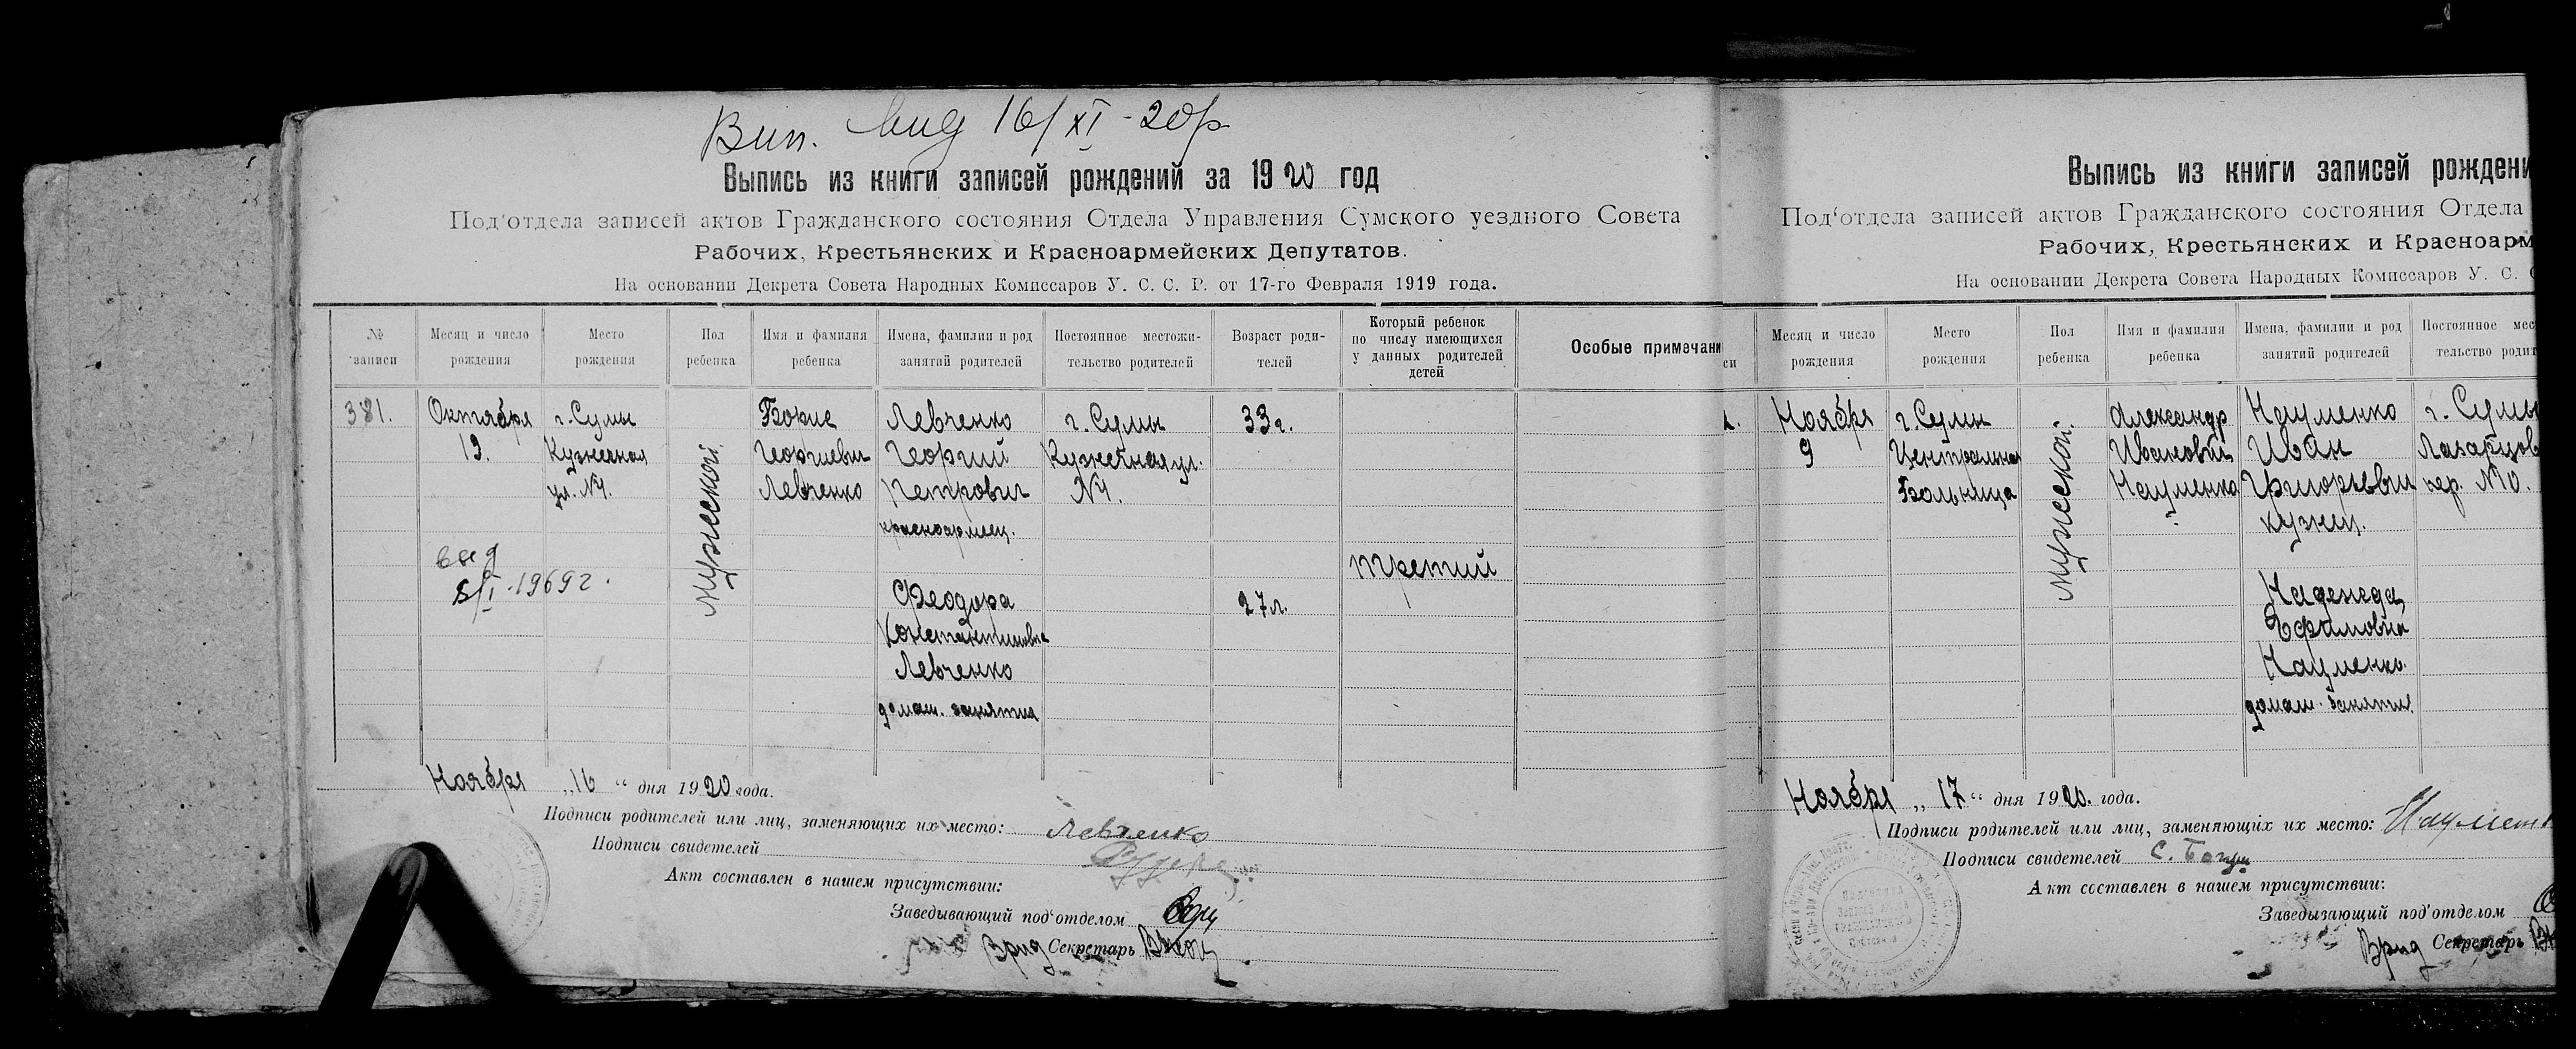 Вип. вид 16/XI-20р.
Выпись из книги записей рождений за 1920 год
Под'отдела записей актов Гражданского состояния Отдела Управления Сумского уездного Совета
Рабочих, Крестьянских и Красноармейских Депутатов.
На основании Декрета Совета Народных Комиссаров У. С. С. Р. от 17-го Февраля 1919 года.
№ записи
Месяц и число рождения
Место рождения
Пол ребенка
Имя и фамилия ребенка
Имена, фамилии и род занятий родителей
Постоянное местожи-
тельство родителей
Возраст роди-
телей
Который ребенок
по числу имеющихся
у данных родителей
детей
Особые примечани
381.
Октября
19.
г. Сумы
Кузнечная
ул. №1.
Мужеской.
Борис
Георгиевич
Левченко
Левченко
Георгий
Петрович
красноармеец.
Феодора
Константиновна
Левченко
домаш. занятия
г. Сумы
Кузнечная ул.
№1.
33 г.
27 л.
третий
выд
8/I-1969 г.
Ноября „16“ дня 1920 года.
Подписи родителей или лиц, заменяющих их место: Левченко
Подписи свидетелей
Акт составлен в нашем присутствии:
Заведывающий под'отделом
Врид Секретарь
Выпись из книги записей рождени
Под'отдела записей актов Гражданского состояния Отдела
Рабочих, Крестьянских и Красноарм
На основании Декрета Совета Народных Комиссаров У. С. С
си
Месяц и число
рождения
Место
рождения
Пол
ребенка
Имя и фамилия
ребенка
Имена, фамилии и род
занятий родителей
Постоянное мес
тельство родит
Ноября
9
г. Сумы
Центральная
Больница
Мужеской.
Александр
Иванович
Науменко
Науменко
Иван
Григорьевич
кузнец.
Надежда
Ефимовна
Науменко.
домаш. занятия.
г. Сумы
пер. №10.
Ноября „17“ дня 1920. года.
Подписи родителей или лиц, заменяющих их место: Наумен
Подписи свидетелей С.
Акт составлен в нашем присутствии:
Заведывающий под'отделом
Врид Секретарь